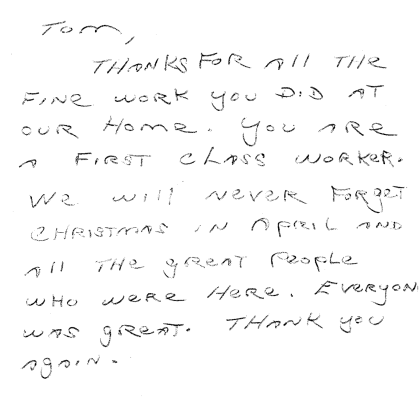 Tom,
THANKS FOR All THE
FINE WORK you DID AT
OUR HOME. YOU ARE
A FIRST CLASS WORKER.
We will NEVER FORGET
CHRISTMAS IN APRIL AND
All THE gREAT PEOPLE
WHO WERE HERE. EVERYON
WAS gREAT. THANK you
AgAIN.